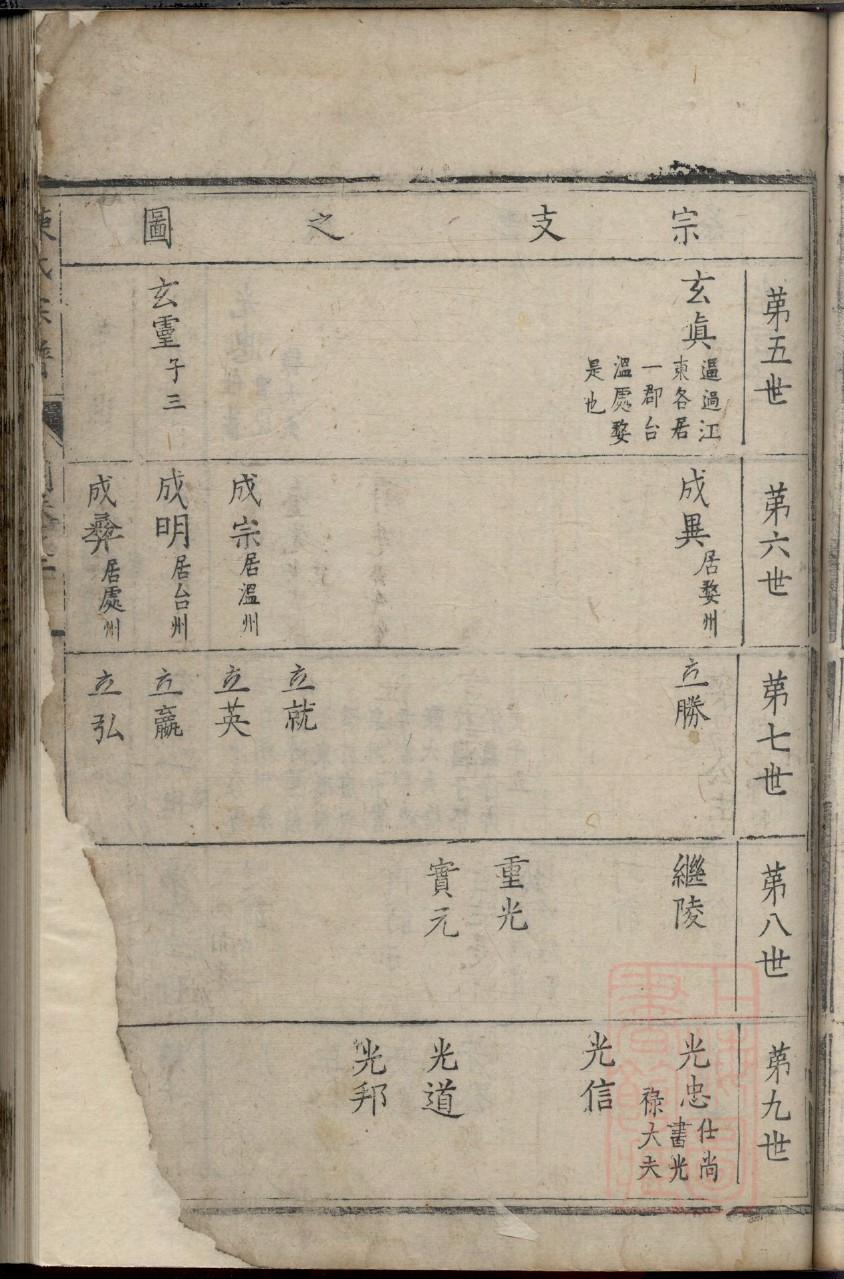 宗支之圖
第五世
玄眞 逼過江東各居一郡台溫處婺是也
玄靈 子三
第六世
成異 居婺州
成宗 居溫州
成明 居台州
成彝 居處州
第七世
立勝
立就
立英
立贏
立弘
第八世
繼陵
重光
實元
第九世
光忠 仕尚書光祿大夫
光信
光道
光邦
氏宗譜